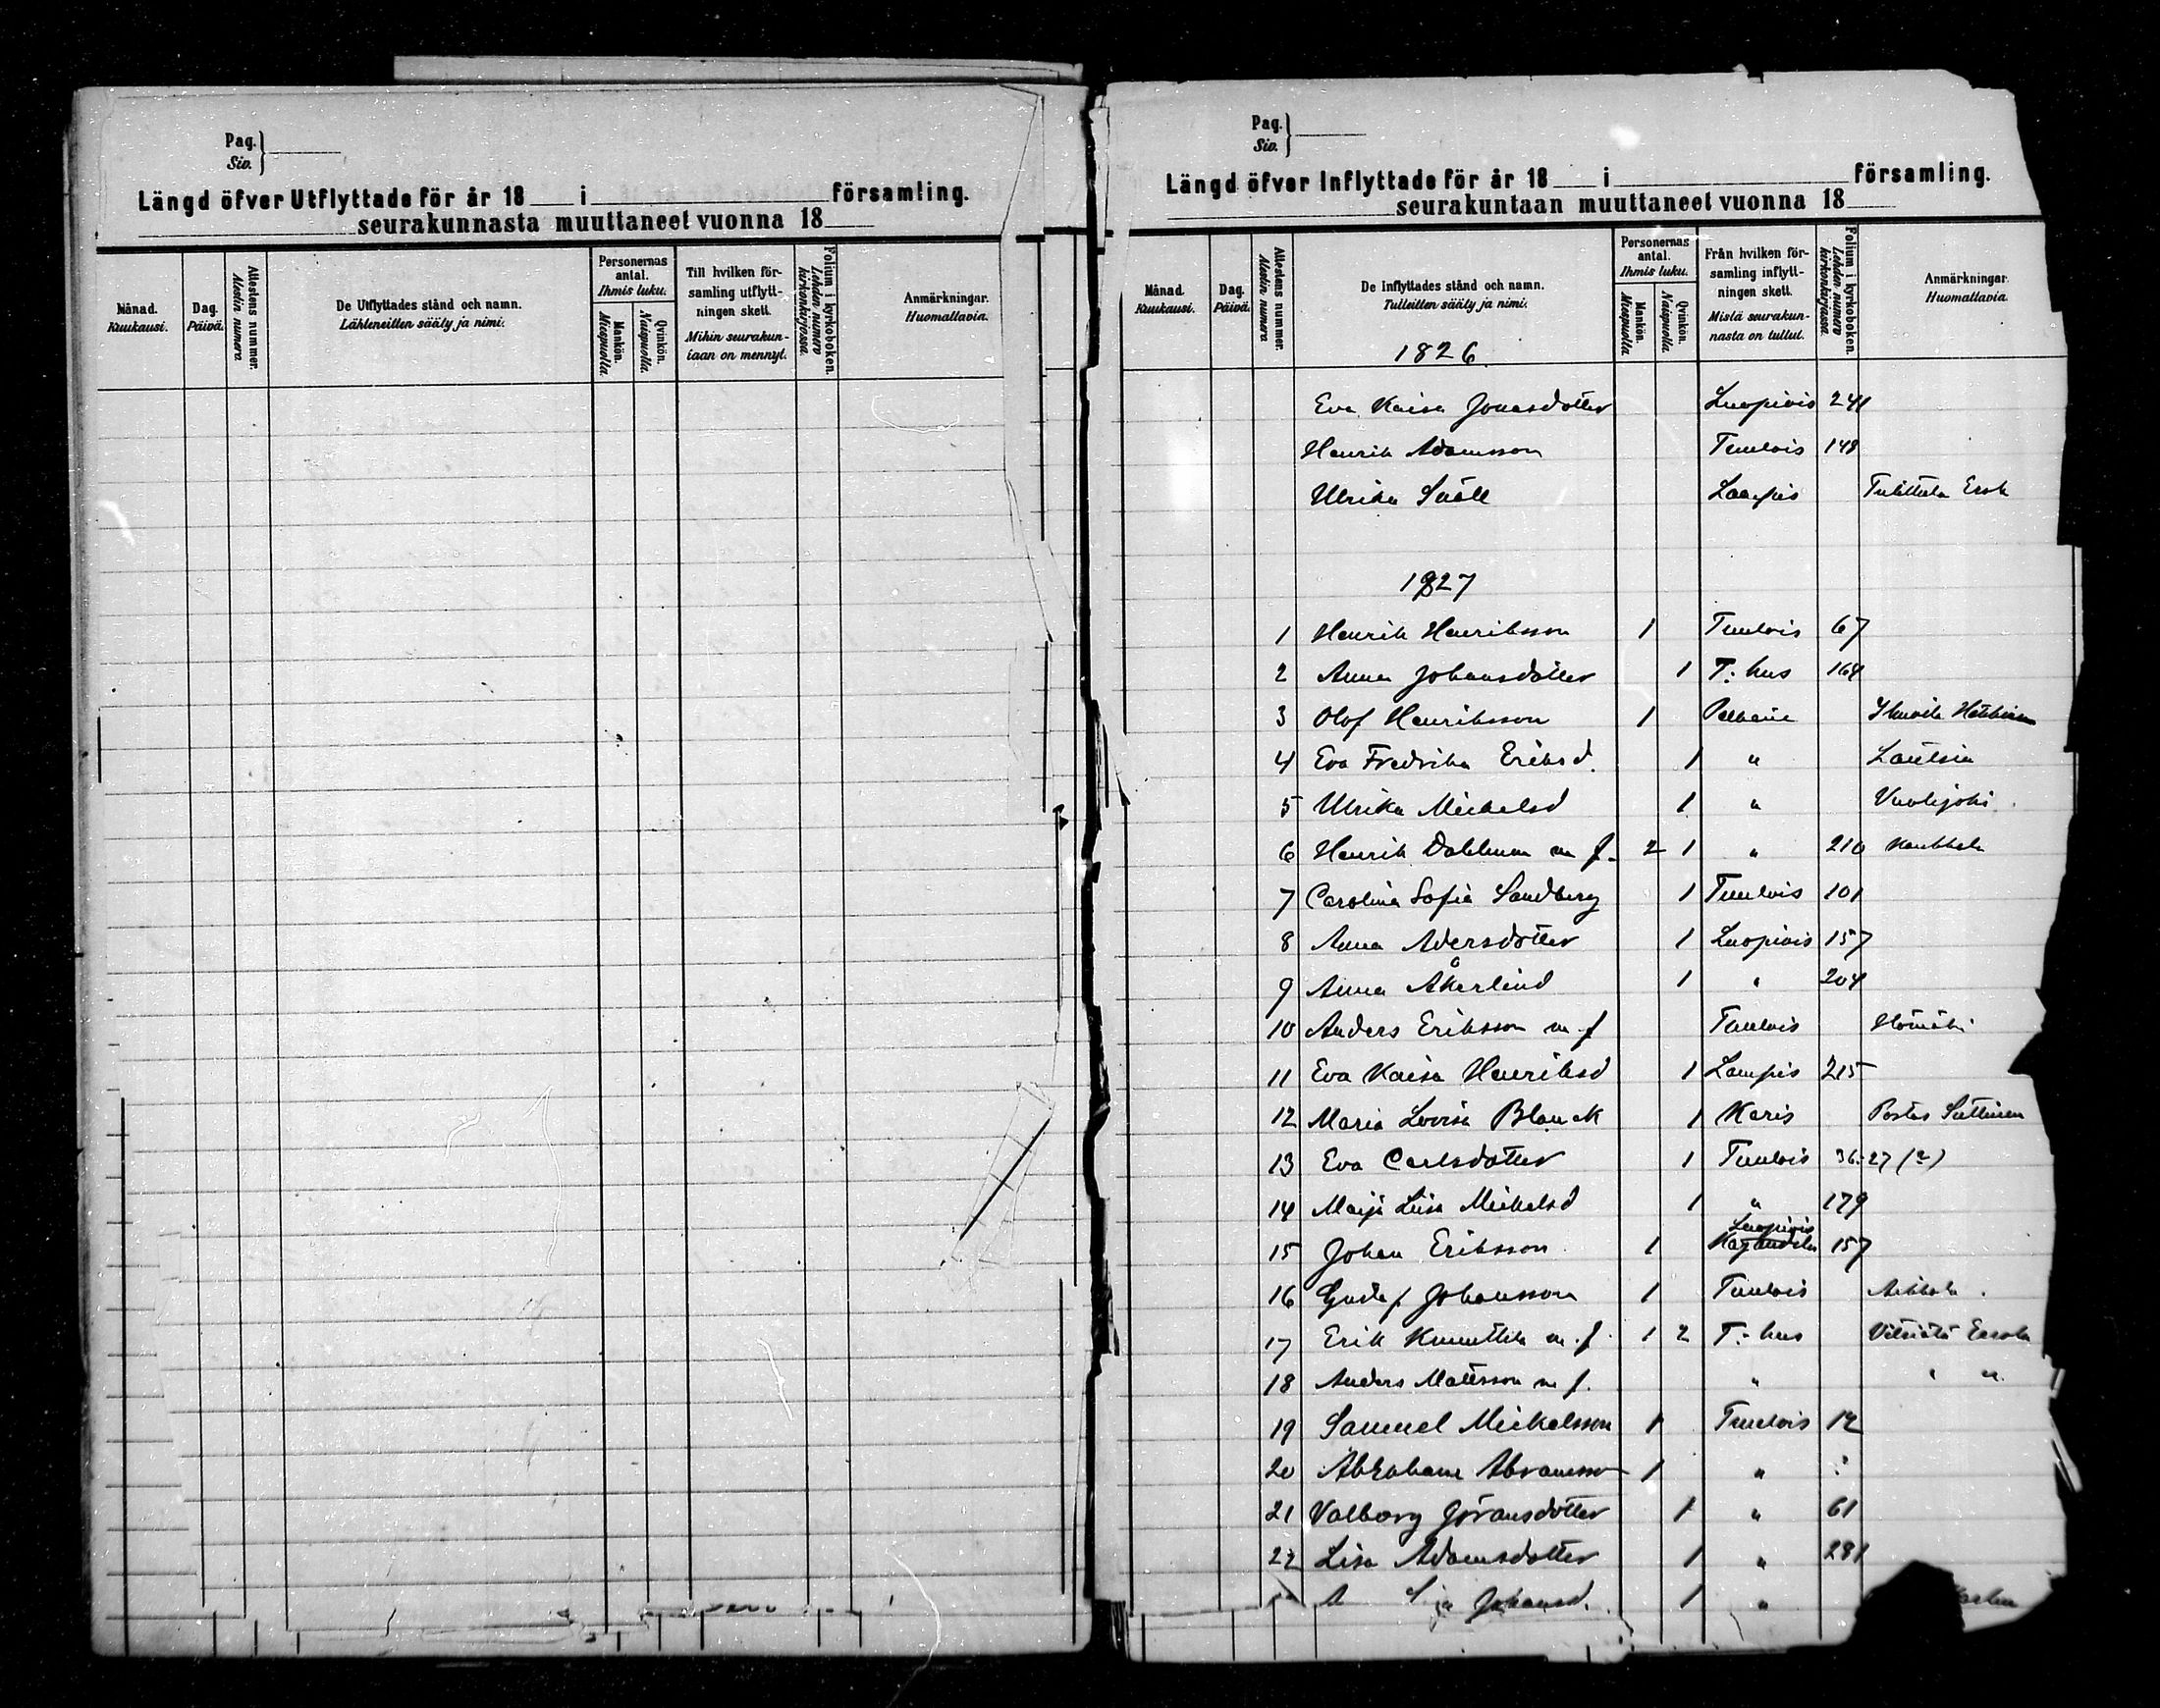 Pag.
Siv.
Längd öfver Utflyttade för år 18 i församling.
seurakunnasta muuttaneet vuonna 18
Månad. Kuukausi.
Dag. Päivä.
Attestens nummer. Mestin numero
De Utflyttades stånd och namn.
Lähteneitten sääty ja nimi.
Personernas antal.
Ihmis luku.
Mankön. Miespuolia.
Qvinkön. Naispuolia.
Till hvilken för-
samling utflytt-
ningen skett.
Mihin seurakun-
taan on mennyt.
Folium i kyrkoboken.
Lehden numero kirkonkirjassa.
Anmärkningar.
Huomattavia.
Pag.
Siv.
Längd öfver Inflyttade för år 18 i församling.
seurakuntaan muuttaneet vuonna 18
Månad. Kuukausi.
Dag. Päivä.
Attestens nummer. Mestin numero
De Inflyttades stånd och namn.
Tulleitten sääty ja nimi.
Personernas antal.
Ihmis luku.
Mankön. Miespuolia
Qvinkön. Naispuolia
Från hvilken för-
samling inflytt-
ningen skett.
Mistä seurakun-
nasta on tullut.
Folium i kyrkoboken.
Lehden numero kirkonkirjassa.
Anmärkningar.
Huomattavia.
1826
Eva Kaisa Jonasdotter Luopiois 241
Henrik Adamsson Tuulois 148
Ulrika Lampis
1827
1 Henrik Henriksson 1 Tuulois 67
2 Anna Johansdotter 1 T:hus 164
3 Olof Henriksson 1 Pelkäne
4 Eva Fredrika Eriksd. 1 " Lautsia
5 Ulrika Mickelsd 1 " Vuolijoki
6 Henrik Dahlman m f. 2 1 " 210
7 Carolina Sofia Sandberg 1 Tuulois 101
8 Anna Adersdotter 1 Luopiois 157
9 Anna Åkerlind 1 " 204
10 Anders Eriksson m f Tuulois
11 Eva Kaisa Henriksd 1 Lampis 215
12 Maria Lovisa Blanck 1 Karis
13 Eva Carlsdotter 1 Tuulois 36.27 (?)
14 Maija Lisa Mickelsd 1 " 179
15 Johan Eriksson 1 Luopiois 157
16 Gustaf Johansson 1 Tuulois
17 Erik Knuuttila m. f. 1 2 T:hus Vitsiälä
18 Anders Mattsson m f. " " "
19 Samuel Mickelsson 1 Tuulois 12
20 Abraham Abramsson 1 " ?
21 Valborg Göransdotter 1 " 61
22 Lisa Adamsdotter 1 " 281
A Johansd. 1 "